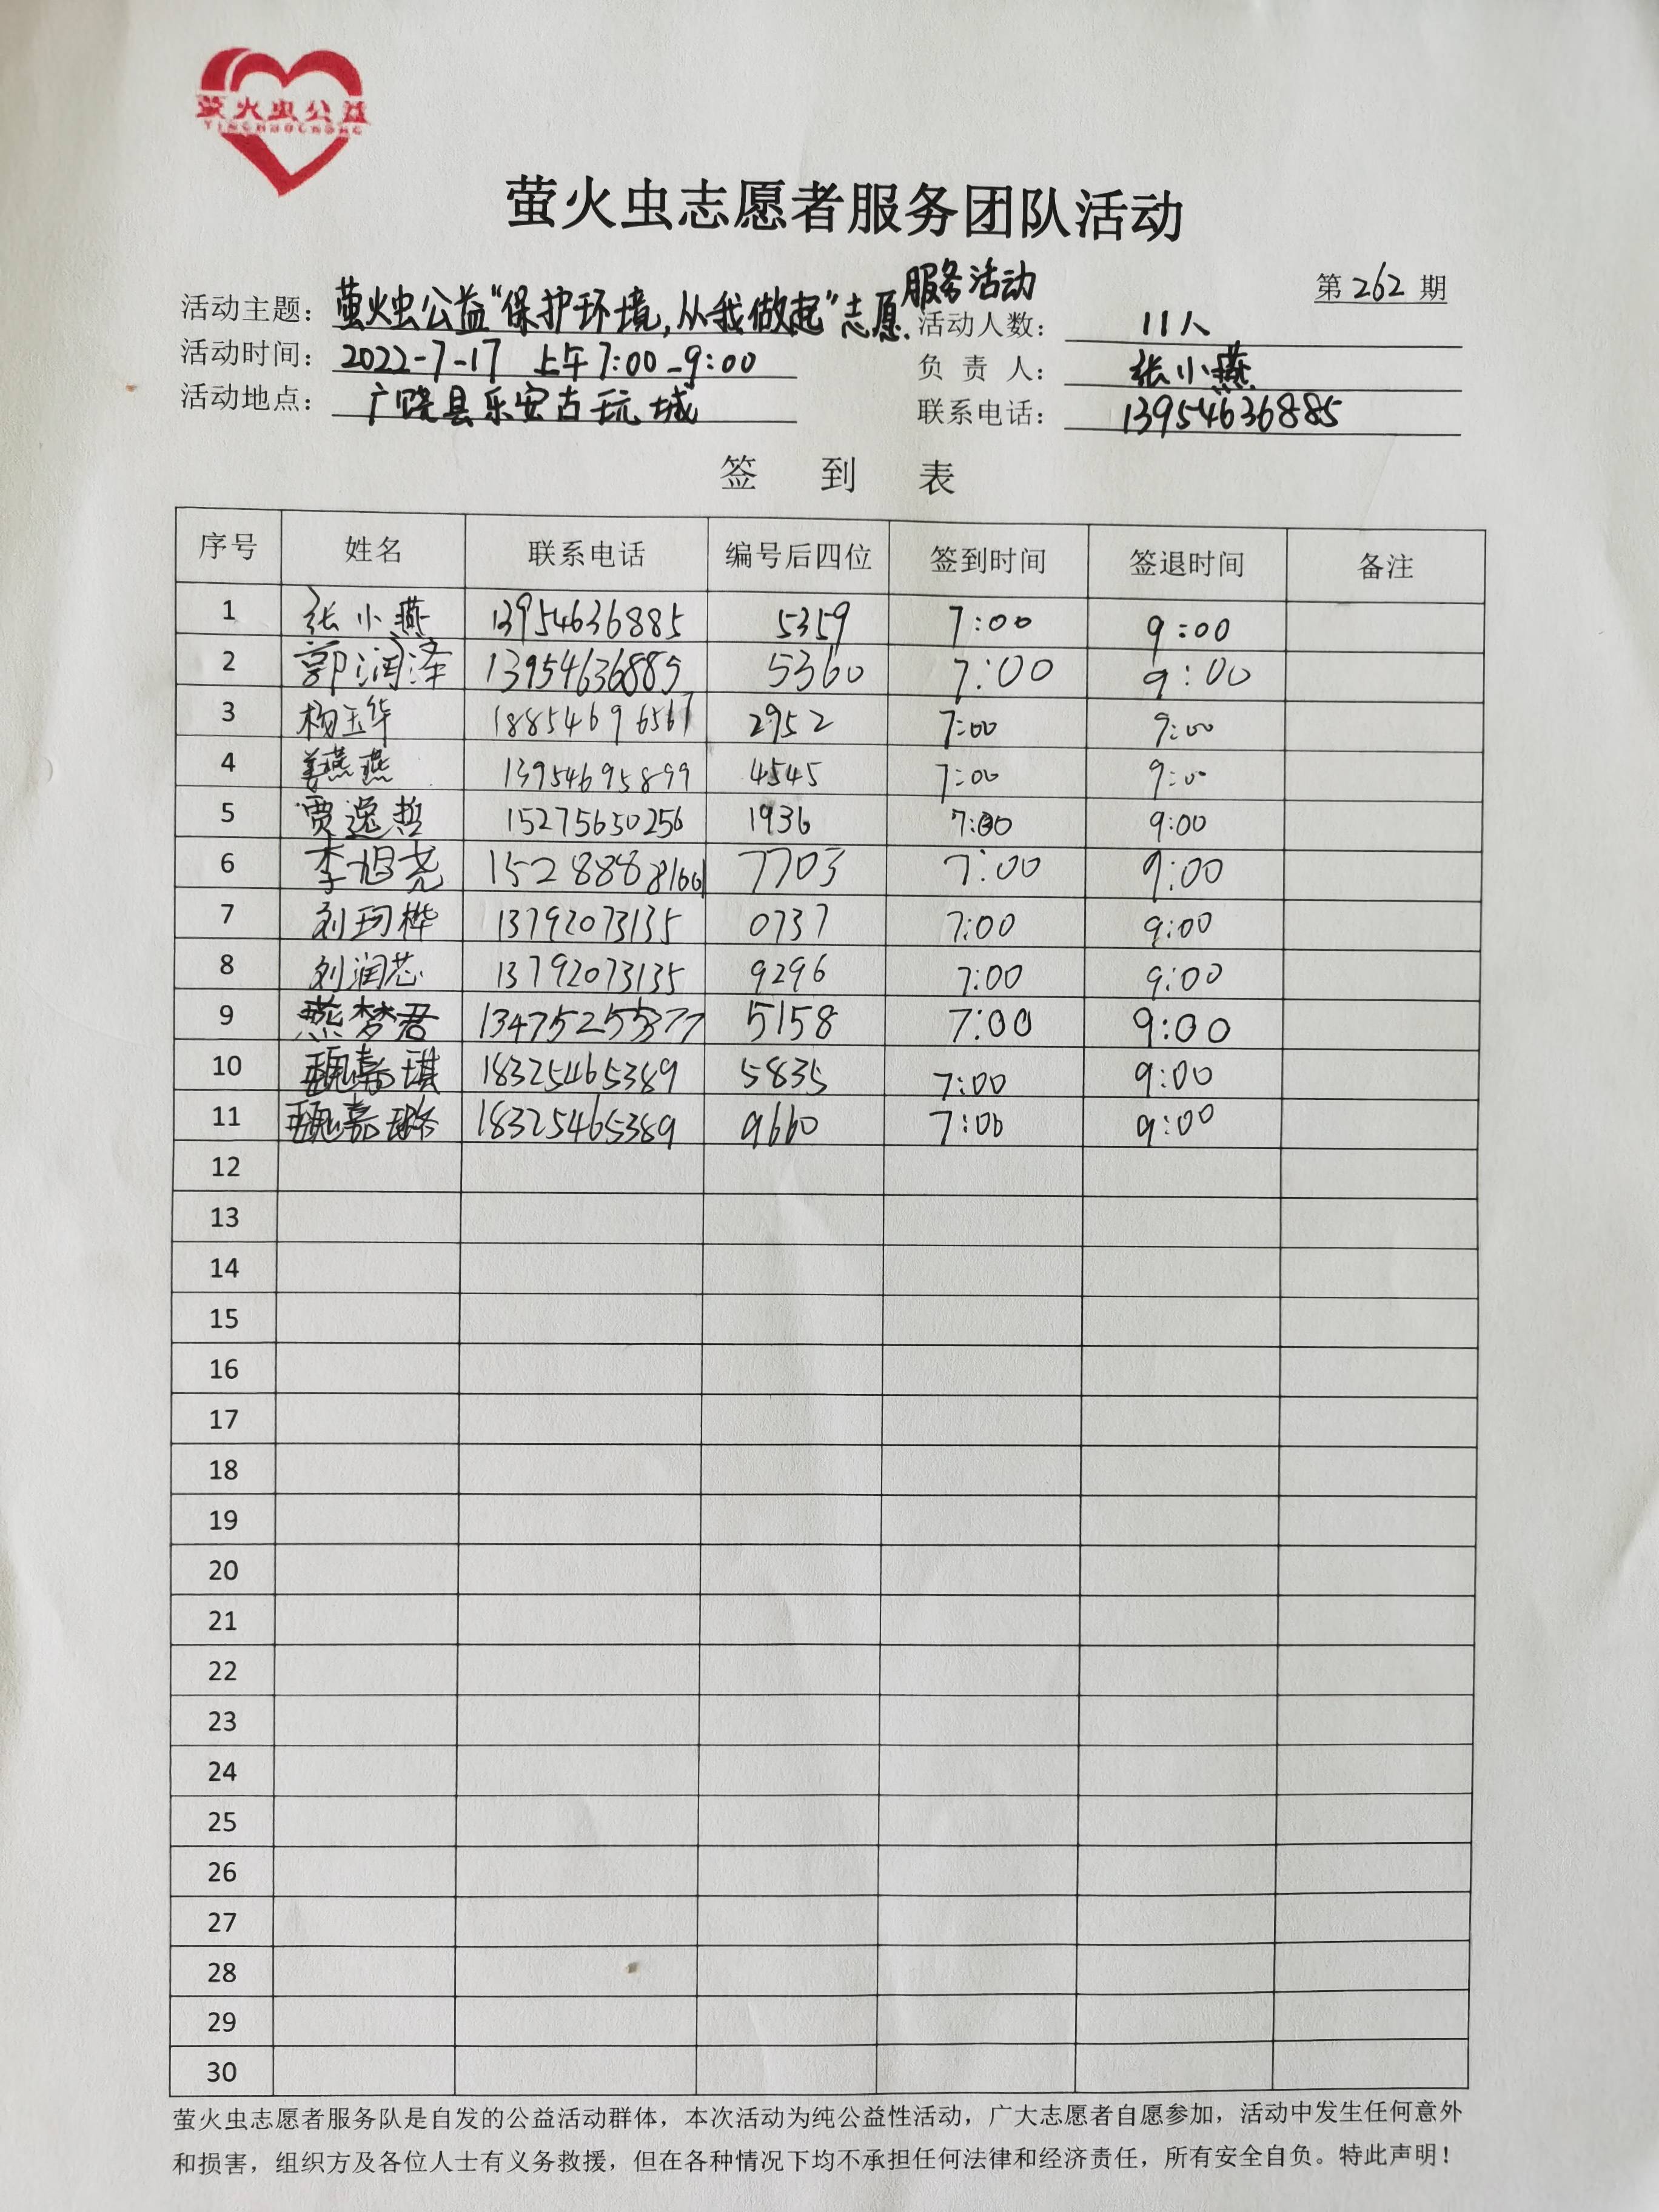 萤火虫公益
YINGHUOCHONG
萤火虫志愿者服务团队活动
第 262 期
活动主题：萤火虫公益“保护环境，从我做起”志愿服务活动
活动人数： 11人
活动时间：2022-7-17 上午7:00-9:00
负 责 人： 张小燕
活动地点： 广饶县乐安古玩城
联系电话： 13954636885
签 到 表
序号 姓名 联系电话 编号后四位 签到时间 签退时间 备注
1 张小燕 13954636885 5359 7:00 9:00
2 郭润泽 13954636885 5360 7:00 9:00
3 杨玉华 18854696567 2952 7:00 9:00
4 姜燕燕 13954695899 4545 7:00 9:00
5 贾逸哲 15275650256 1936 7:00 9:00
6 李旭尧 7703 7:00 9:00
7 刘珂桦 13792073135 0737 7:00 9:00
8 刘润芯 13792073135 9296 7:00 9:00
9 燕梦君 13475255377 5158 7:00 9:00
10 魏嘉琪 18325465389 5835 7:00 9:00
11 魏嘉璐 18325465389 9660 7:00 9:00
12
13
14
15
16
17
18
19
20
21
22
23
24
25
26
27
28
29
30
萤火虫志愿者服务队是自发的公益活动群体，本次活动为纯公益性活动，广大志愿者自愿参加，活动中发生任何意外
和损害，组织方及各位人士有义务救援，但在各种情况下均不承担任何法律和经济责任，所有安全自负。特此声明！